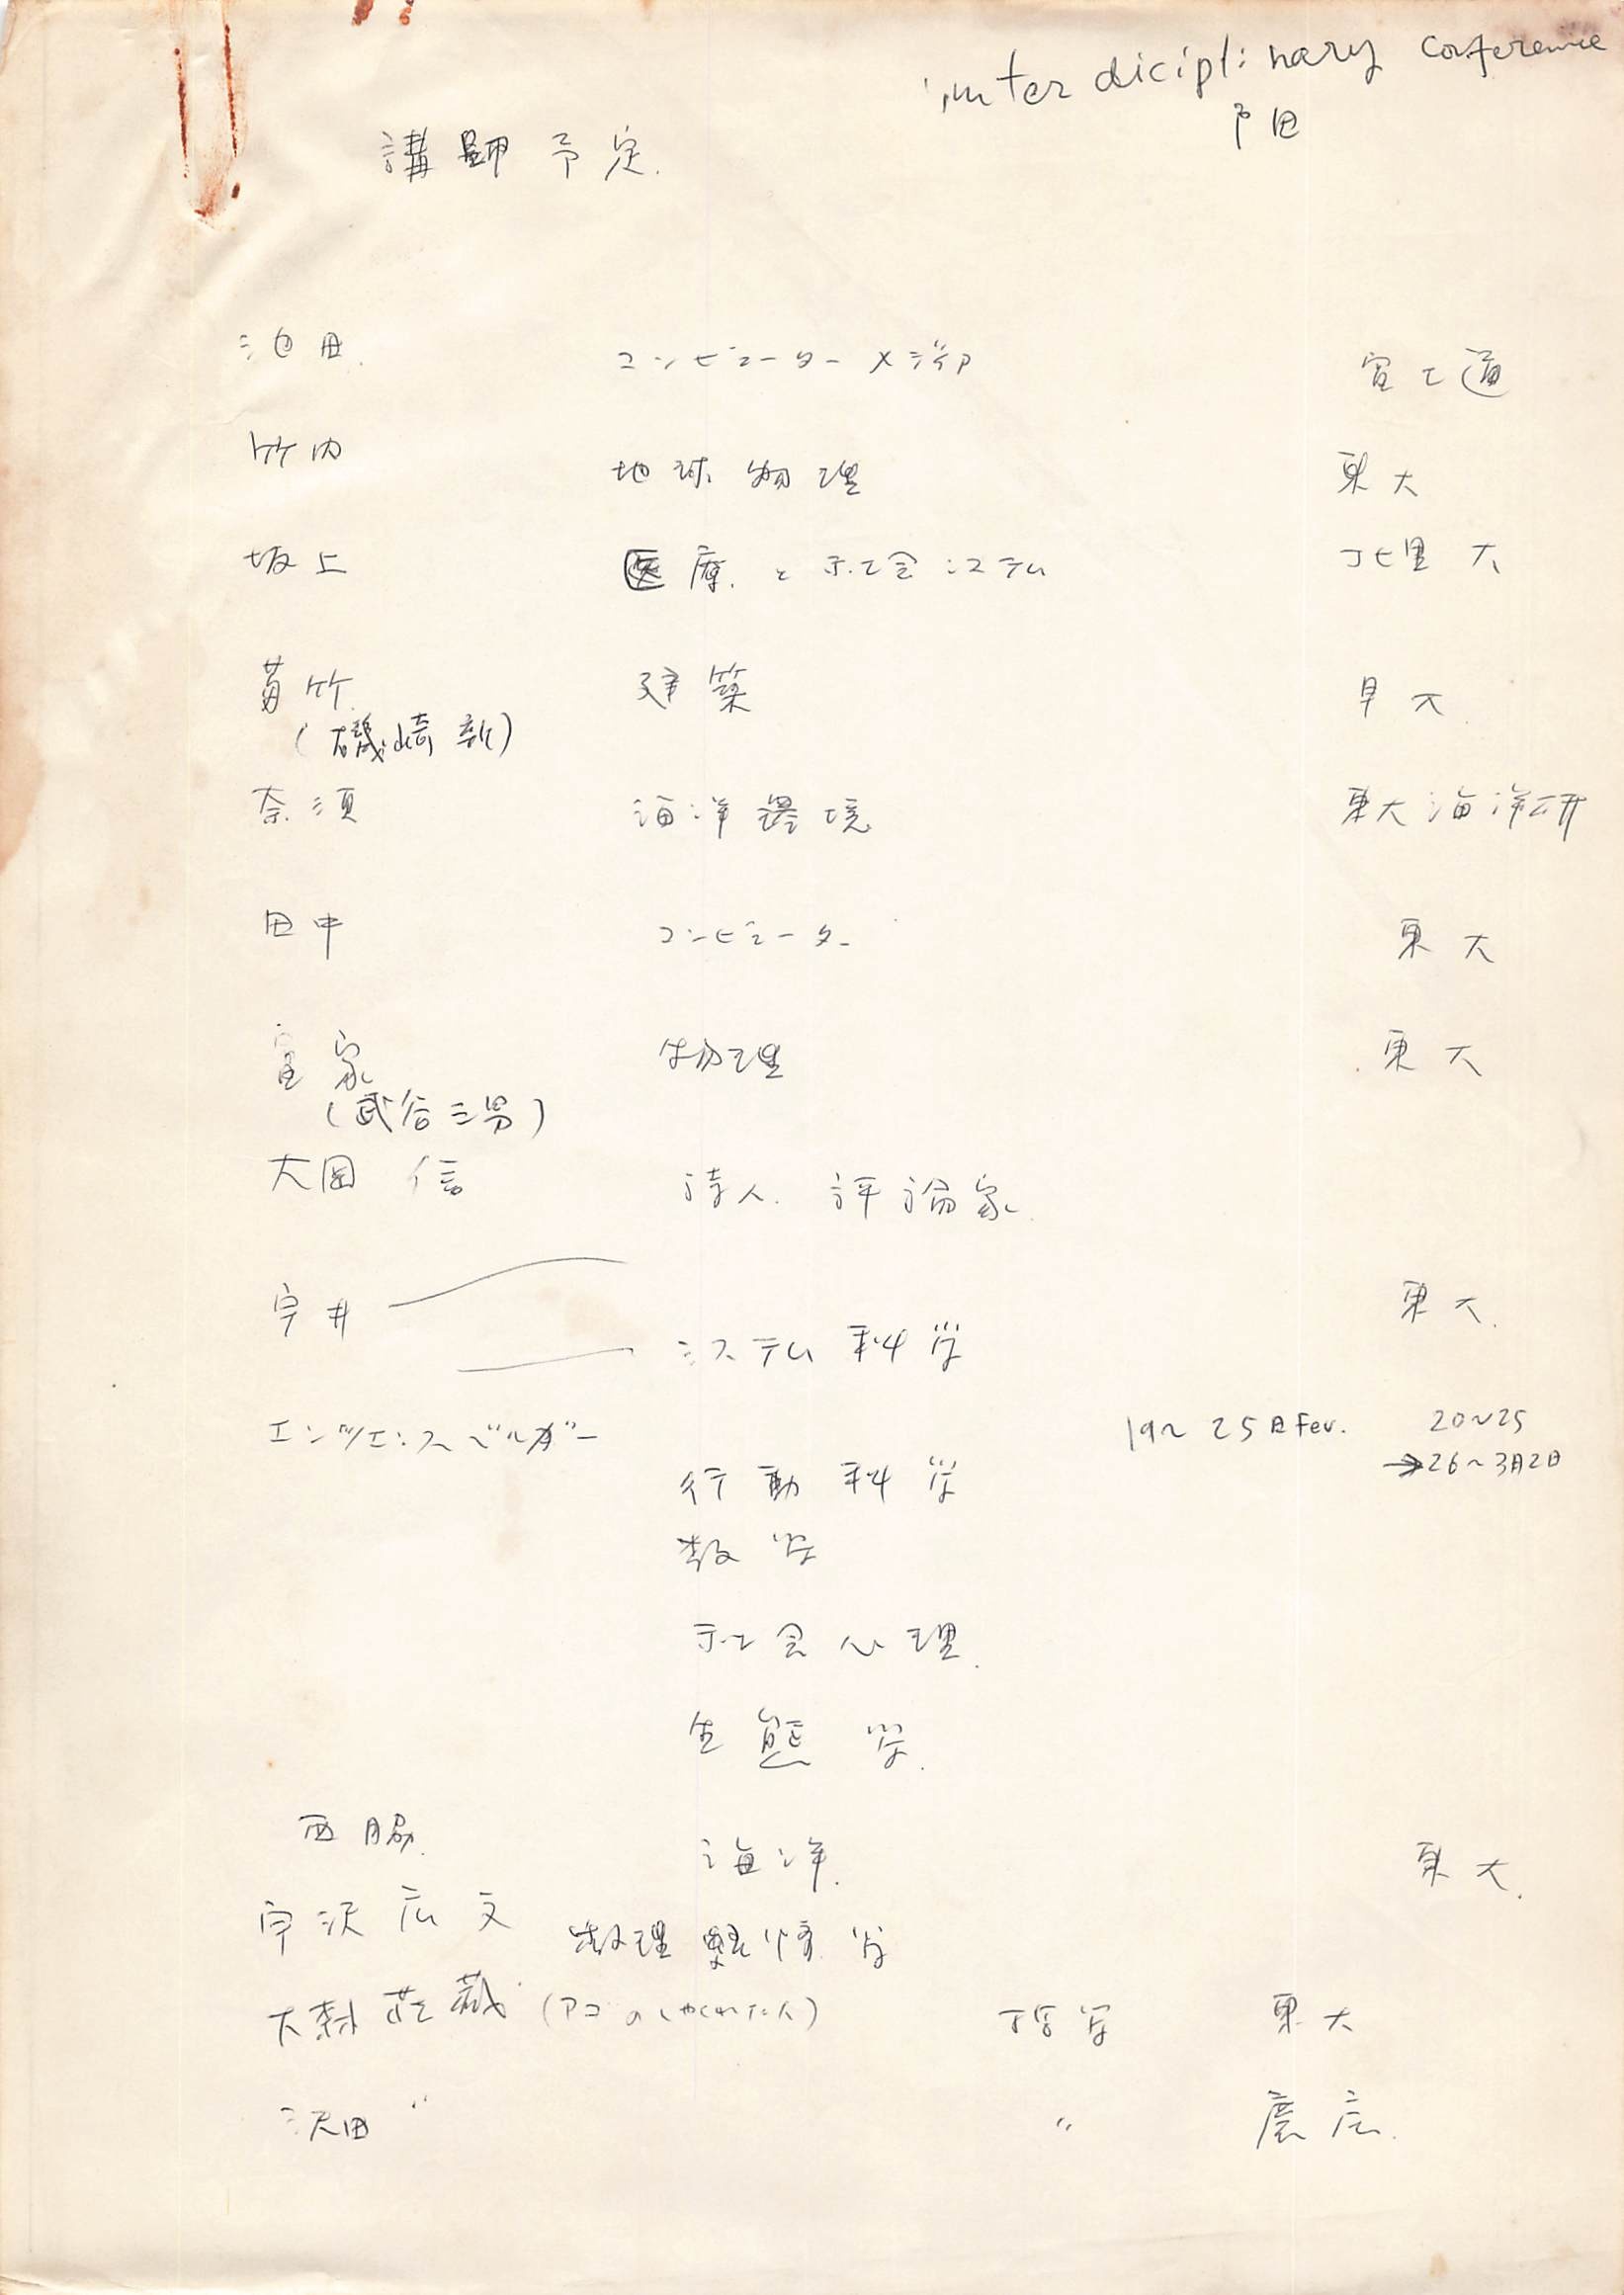 inter diciplinary conference
戸田
講師予定.
池田 コンピューターメディア 富士通
竹内 地球物理 東大
坂上 医療と社会システム 北里大
菊竹 建築 早大
(磯崎新)
奈須 海洋環境 東大海洋研
田中 コンピューター 東大
富家 物理 東大
(武谷三男)
大岡 信 詩人. 評論家
宇井 東大
システム科学
エンツェンスベルガー 19〜25日Fev. 20〜25
→26〜3月2日
行動科学
数学
社会心理
生態学
西脇 海洋 東大
宇沢広文 数理経済学
大森荘蔵 (アゴのしゃくれた人) 哲学 東大
沢田 〃 〃 慶応